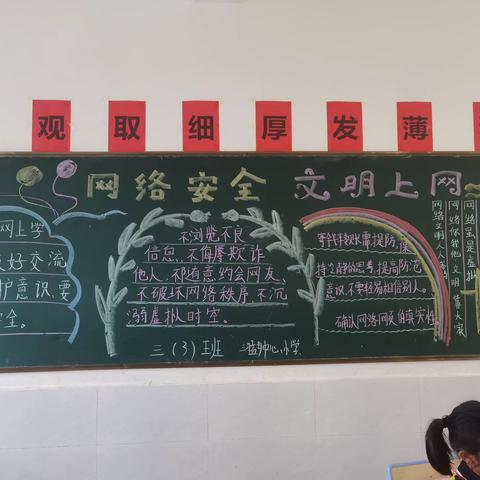 观取细厚发薄
网络安全 文明上网
网上学
良好交流
护意识,要
安全。
不浏览不良
信息,不侮辱欺诈
他人,不随意约会网友,
不破坏网络秩序,不沉
溺虚拟时空。
三(3)班
中心小学
提防,保
持清醒的思考,提高防范
意识,不要轻易相信别人。
确认网络网友的真实性
网络文明人人
网络你我他,文明靠大家
网络虽是虚拟